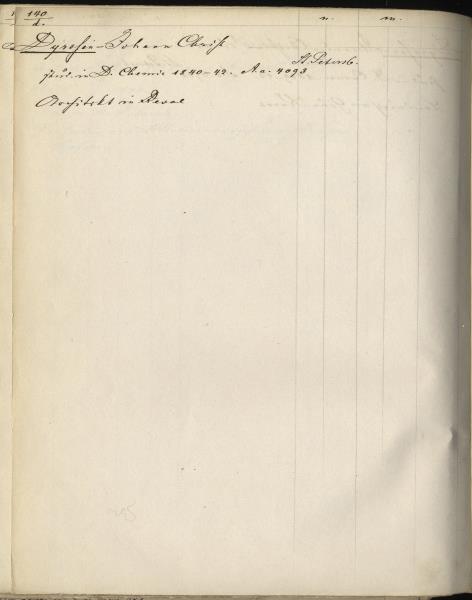 140
d.
n. m.
Dyrssen Johann Christ
St. Petersb.
stud. in D. Chemie 1840-42. Aa. 4093
Architekt in Reval